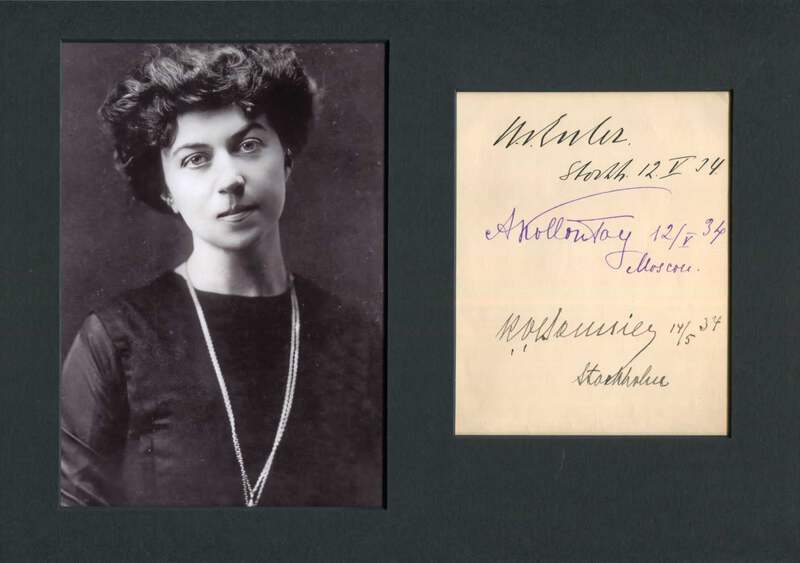 Stockh. 12 V 34
AKollontay 12/V 34
Moscou.
14/5 34
Stockholm